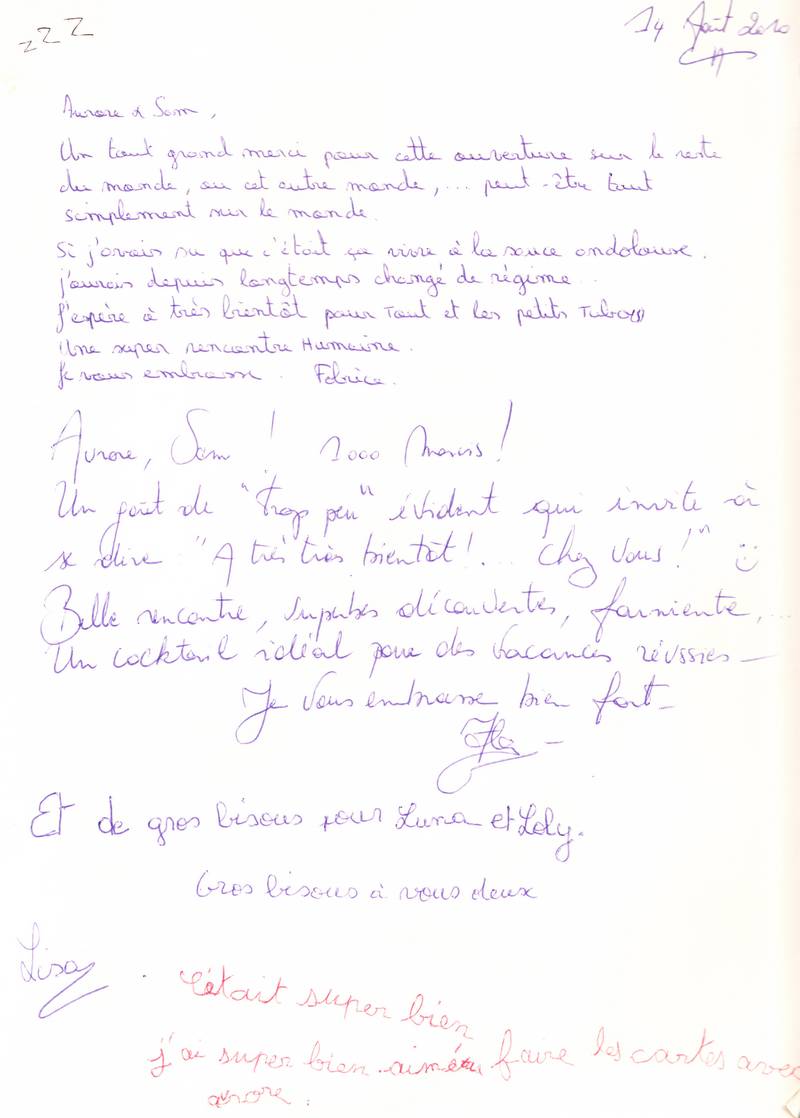 zzZ
14 Août 2010
Aurore & Sam,
Un tout grand merci pour cette ouverture sur le reste
du monde, ou cet autre monde,... peut-être tout
simplement sur le monde.
Si j'avais su que c'était ça vivre à la sauce andalouse.
j'aurais depuis longtemps changé de régime...
J'espère à très bientôt pour Tout et les petits
Une super rencontre Humaine.
Je vous embrasse. Fabrice.
Aurore, Sam ! 1000 Mercis !
Un goût de "trop peu" évident qui invite à
se dire "A très très bientôt !... Chez Vous !" ☺
Belle rencontre, superbes découvertes, farniente,...
Un cocktail idéal pour des vacances réussies —
Je vous embrasse bien fort —
Et de gros bisous pour Luna et Loly.
Gros bisous à vous deux
Lisa
C'était super bien
j'ai super bien aimé faire les cartes avec
avrore.